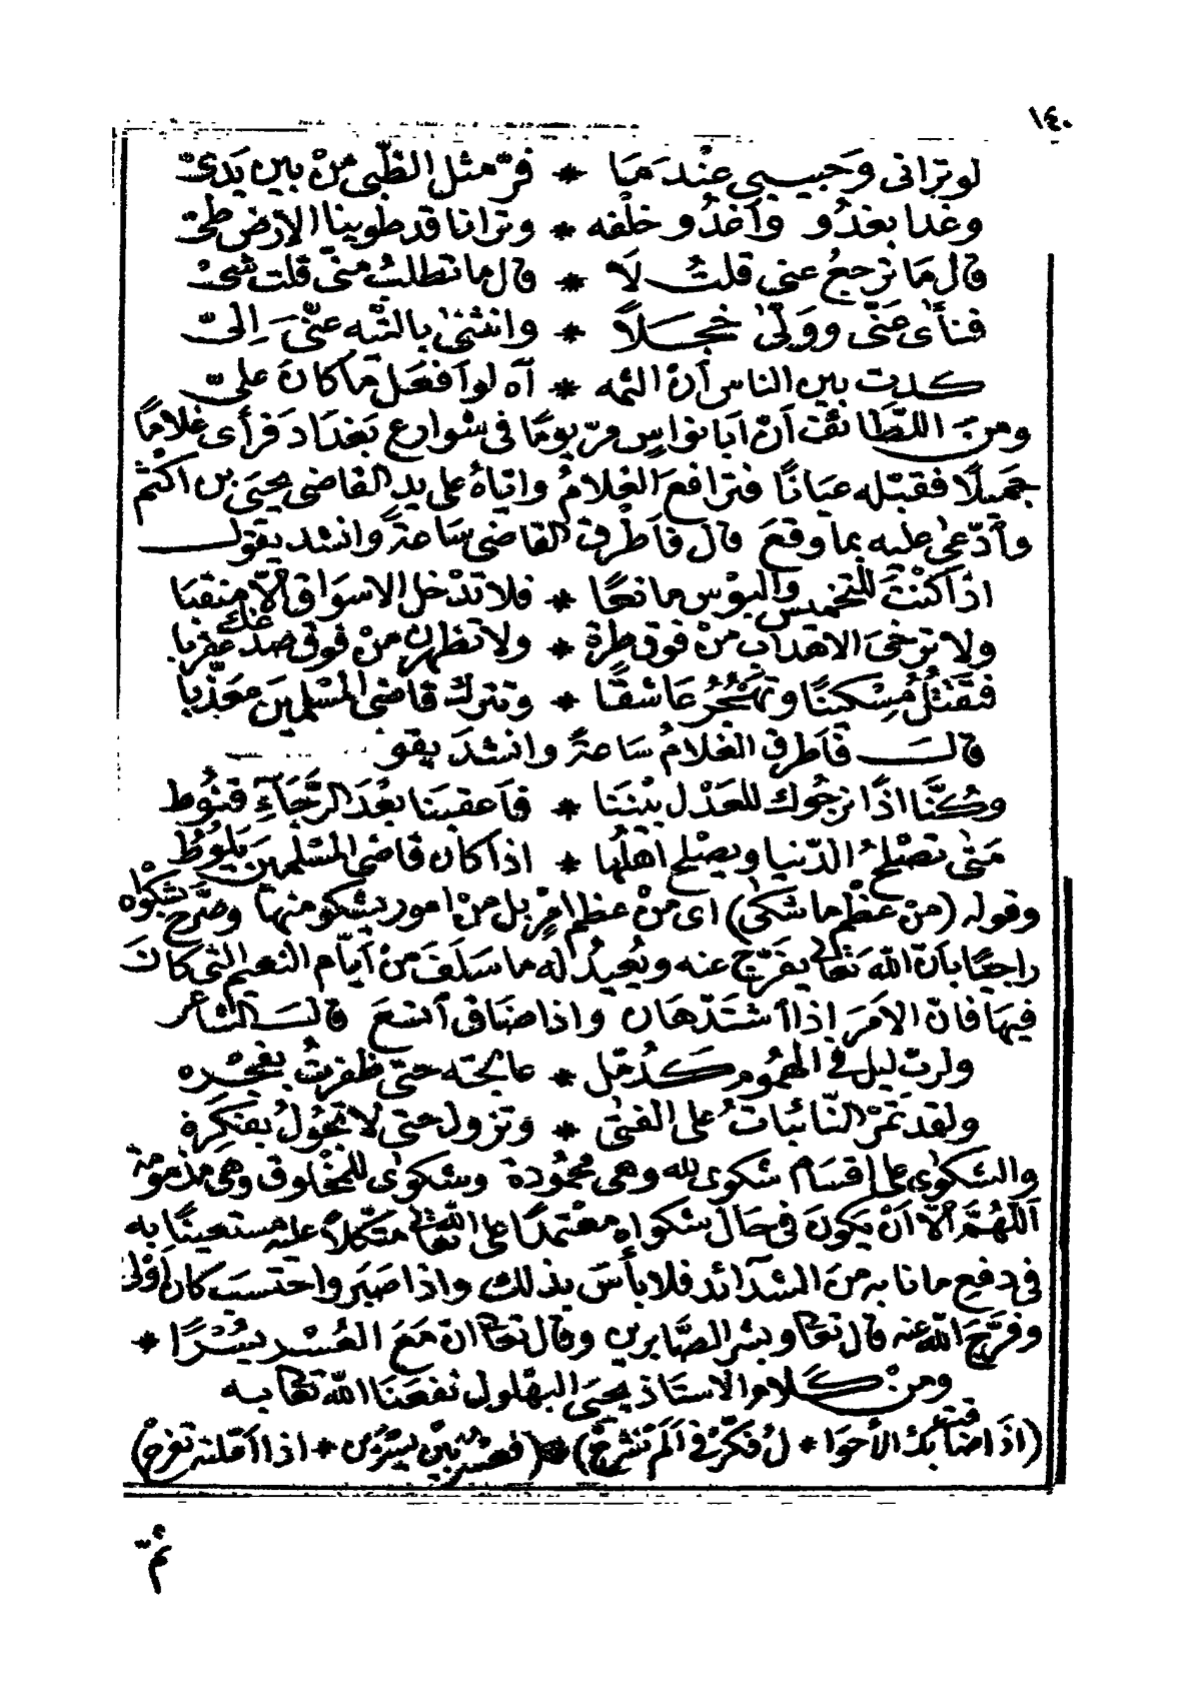 ١٤٠
لو ترانى وَحبيبى عنْدَمَا * فرّ مثل الظّبى منْ بين يَدىّ
وغدا يغدُو وَأغدُو خلْفه * وترانا قد طوينا الارْض طىّ
قال مَا ترْجعُ عنى قلتُ لَا * قال ما تطلبُ منّى قلت شىْ
فنأىٰ عَنّى وولّىٰ خجَلاً * وانثنىٰ بالتّيه عنّى َ اِلىّ
كدت بين الناس أنْ الثمه * آه لو افعَل مَا كانَ علىّ
ومنَ اللطائف أنّ أبَا نواسٍ مرّ يومًا فى شوارع بَغدَاد فَرأى غلامًا
جَميلًا فقبّله عيَانًا فترافعَ الغلامُ وايّاهُ على يدِ القاضى يحيَى بن اكْثم
وأدّعىٰ عليه بما وقعَ قالَ فَأطْرق القاضى سَاعةً وانشد يقول
اذَا كنْتَ للتخميس والبؤس مانعًا * فلا تدْخل الاسوَاق الّا منقبَا
ولا ترخىَ الاهداب منْ فوق طرة * ولا تظهرن منْ فوق صدغك عقربا
فتَقتُلُ مُسْكينًا وَتهْجُرُ عَاشقًا * وتترك قاضى المسْلمينَ معَذّبا
قالَ فَاَطرق الغلامُ سَاعةً وانشدَ يقو
وكُنَّا اذًا نرجُوك للعَدْل بيْننَا * فاَعقبَنا بعْدَ الرَّجَاءِ قنُوط
مَتىٰ تصْلحُ الدّنيا ويصْلح اَهلُها * اذا كان قاضى المسْلمينَ يَلُوطُ
وقوله (منْ عظْم ما شكىٰ) اى منْ عظم امْرٍ بل منْ امور يشكو منها وصَرّح بشكْواه
راجيًا بأنّ اللهَ تعالى يفرّج عنه ويُعيدُ له ما سَلَفَ منْ اَيّام النعيم التى كانَ
فيهَا فانّ الاَمرَ اذا اشتَدّ هَان واذا ضَاق اتسَعَ قالَ الشاعر
ولربّ ليل فى الهمُوم كدُمّل * عالجته حتىٰ ظفرتُ بفجْره
ولقد تَمرّ النّائباتُ على الفتىٰ * وَتزول حتى لا تجُولُ بفِكرِه
والشكوىٰ على اقسَام شكوى لله وهى محمُودة وشكوىٰ للمخْلوق وهى مذمومة
اَللّهُمَّ اِلّا اَنْ يَكونَ فى حَال شكواه معْتمدًا على الله تعالى متّكلاً عليه مستعينًا به
فى دفعِ ما نابه منَ الشدائد فلا بأسَ بذلك واذا صَبَر واحتسَب كان اَوْلىٰ
وفرّجَ الله عنه قال تعالى وبشر الصَّابرين وقال تعالى ان مَعَ العُسْر يسْرًا *
ومنْ كَلام الاستَاذ يحيَى البهلول نفعَنَا اللهُ تعالى به
(اذَا ضَاقتْ بكَ الأحوَا * لُ فكّرْ فى اَلَمْ نَشرَحْ) * (فعسْرٌ بيْن يسْرَيْن * اذا اَمّلته تفرحْ)
ثمّ